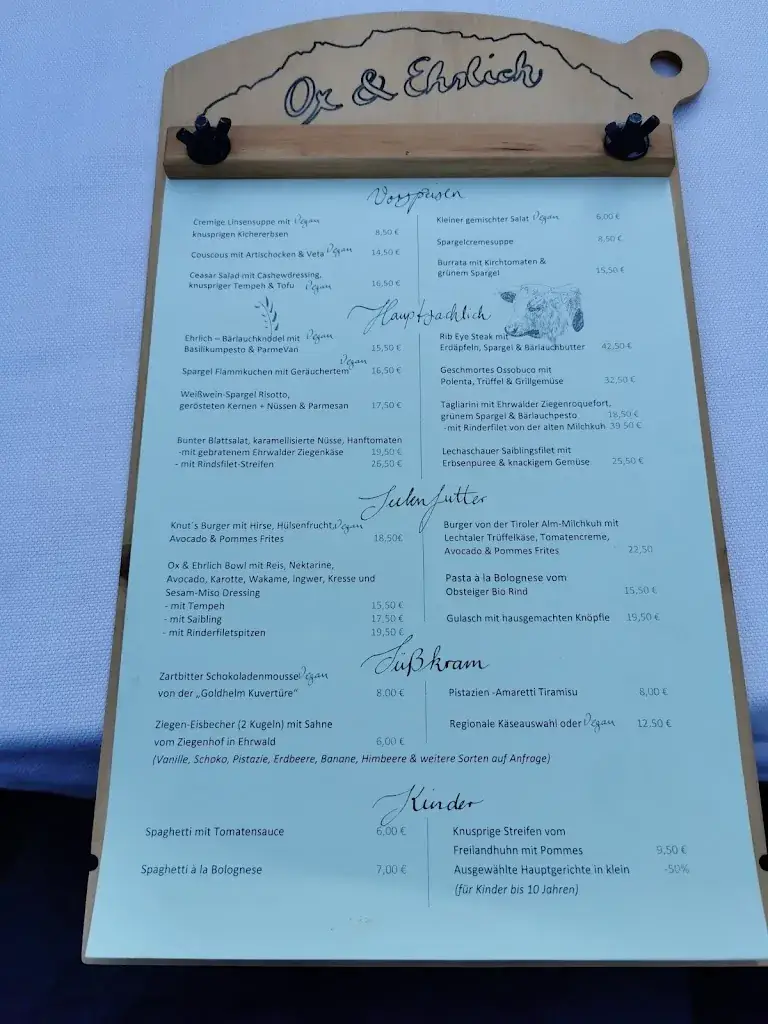 Ox & Ehrlich
Vorspeisen
Cremige Linsensuppe mit Vegan
knusprigen Kichererbsen 8,50 €
Couscous mit Artischocken & Veta Vegan 14,50 €
Ceasar Salad mit Cashewdressing,
knuspriger Tempeh & Tofu Vegan 16,50 €
Kleiner gemischter Salat Vegan 6,00 €
Spargelcremesuppe 8,50 €
Burrata mit Kirchtomaten &
grünem Spargel 15,50 €
Hauptsachlich
Ehrlich – Bärlauchknödel mit Vegan
Basilikumpesto & ParmeVan 15,50 €
Spargel Flammkuchen mit Geräuchertem Vegan 16,50 €
Weißwein-Spargel Risotto,
gerösteten Kernen + Nüssen & Parmesan 17,50 €
Bunter Blattsalat, karamellisierte Nüsse, Hanftomaten
-mit gebratenem Ehrwalder Ziegenkäse 19,50 €
- mit Rindsfilet-Streifen 26,50 €
Rib Eye Steak mit
Erdäpfeln, Spargel & Bärlauchbutter 42,50 €
Geschmortes Ossobuco mit
Polenta, Trüffel & Grillgemüse 32,50 €
Tagliarini mit Ehrwalder Ziegenroquefort,
grünem Spargel & Bärlauchpesto 18,50 €
-mit Rinderfilet von der alten Milchkuh 39.50 €
Lechaschauer Saiblingsfilet mit
Erbsenpuree & knackigem Gemüse 25,50 €
Seelenfutter
Knut´s Burger mit Hirse, Hülsenfrucht, Vegan
Avocado & Pommes Frites 18,50€
Ox & Ehrlich Bowl mit Reis, Nektarine,
Avocado, Karotte, Wakame, Ingwer, Kresse und
Sesam-Miso Dressing
- mit Tempeh 15,50 €
- mit Saibling 17,50 €
- mit Rinderfiletspitzen 19,50 €
Burger von der Tiroler Alm-Milchkuh mit
Lechtaler Trüffelkäse, Tomatencreme,
Avocado & Pommes Frites 22,50
Pasta à la Bolognese vom
Obsteiger Bio Rind 15,50 €
Gulasch mit hausgemachten Knöpfle 19,50 €
Süßkram
Zartbitter Schokoladenmousse Vegan
von der „Goldhelm Kuvertüre“ 8,00 €
Ziegen-Eisbecher (2 Kugeln) mit Sahne
vom Ziegenhof in Ehrwald 6,00 €
Pistazien -Amaretti Tiramisu 8,00 €
Regionale Käseauswahl oder Vegan 12,50 €
(Vanille, Schoko, Pistazie, Erdbeere, Banane, Himbeere & weitere Sorten auf Anfrage)
Kinder
Spaghetti mit Tomatensauce 6,00 €
Spaghetti à la Bolognese 7,00 €
Knusprige Streifen vom
Freilandhuhn mit Pommes 9,50 €
Ausgewählte Hauptgerichte in klein -50%
(für Kinder bis 10 Jahren)